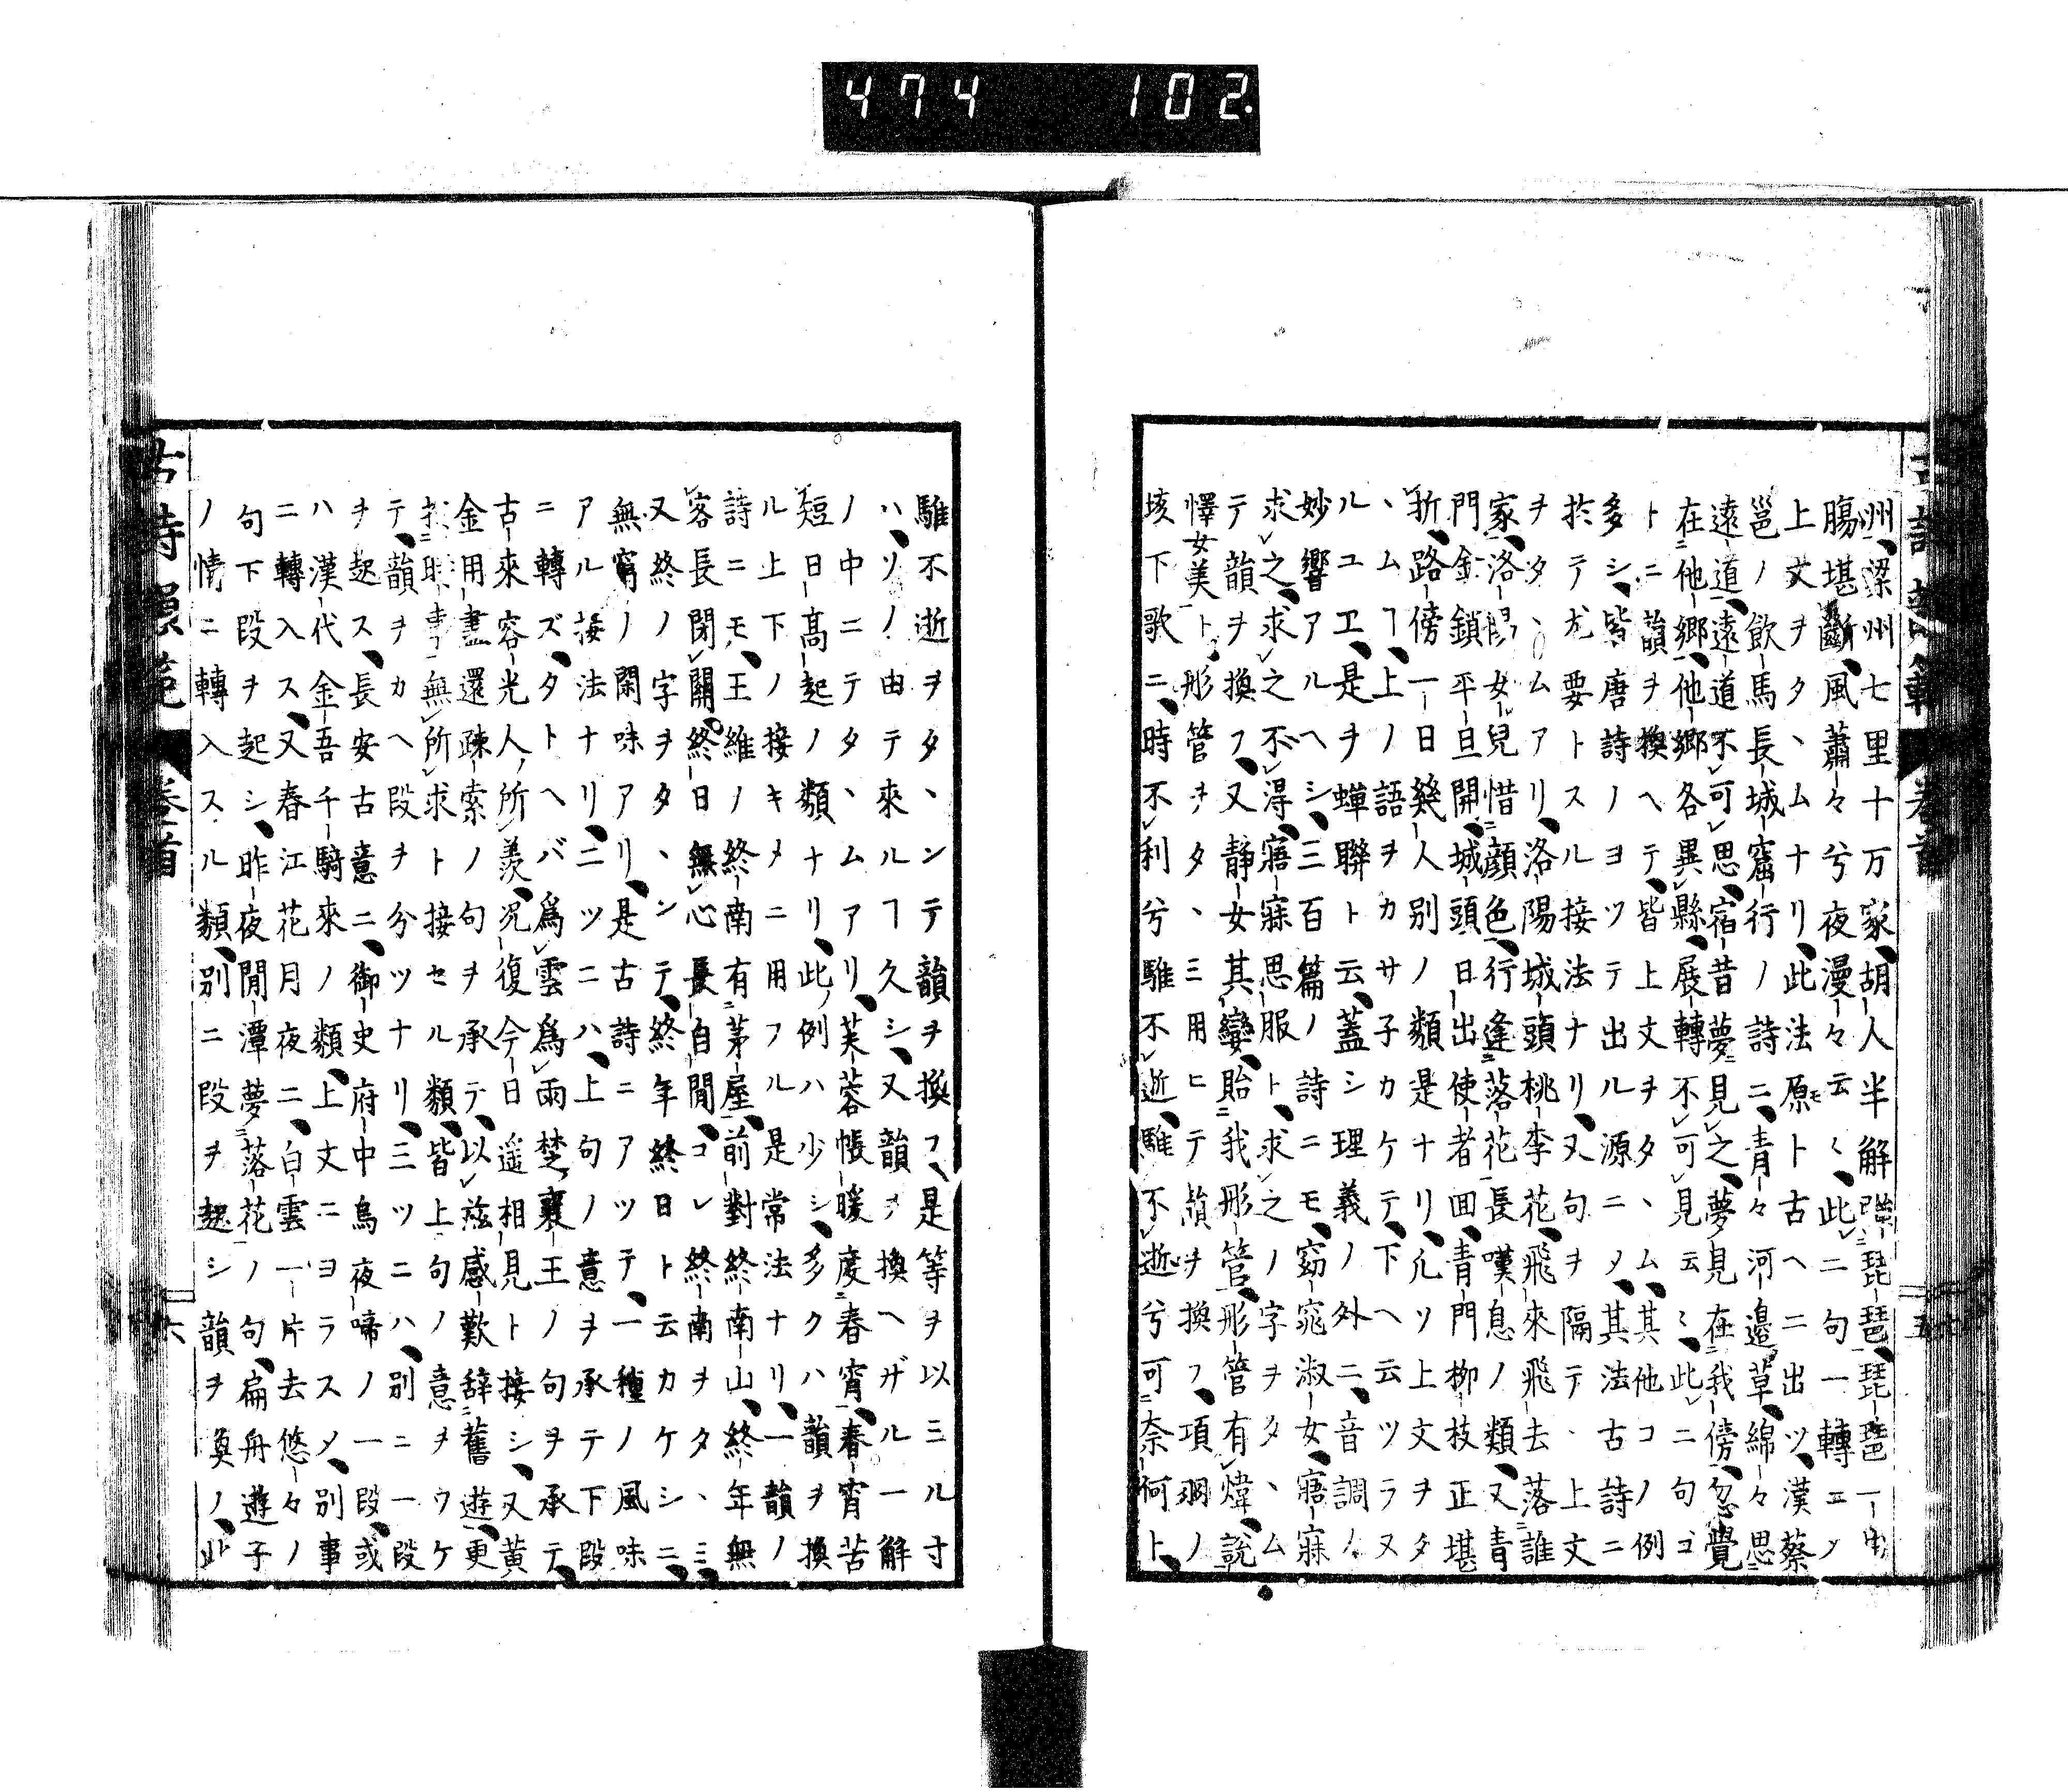 474 102.
州、梁州七里十万家、胡人半解彈琵琶、琵琶一曲
腸堪斷、風蕭々兮夜漫々云〻、此二句一轉ニシ
上文ヲタヽムナリ、此法原モト古ヘニ出ツ、漢蔡
邕ノ飲馬長城窟行ノ詩ニ、青々河邉草、綿々思
遠道、遠道不可思、宿昔夢見之、夢見在我傍、忽覺
在他郷、他郷各異縣、展轉不可見云〻、此二句コ
トニ韻ヲ換ヘテ、皆上文ヲタヽム、其他コノ例
多シ、皆唐詩ノヨツテ出ル源ニメ、其法古詩ニ
於テ尤要トスル接法ナリ、又句ヲ隔テ、上文
ヲタヽムアリ、洛陽城頭桃李花、飛來飛去落誰
家、洛陽女兒惜顔色、行逢落花長嘆息ノ類、又青
門金鎖平旦開、城頭日出使者回、青門柳枝正堪
折、路傍一日幾人別ノ類是ナリ、凡ソ上文ヲタ
ヽムヿ、上ノ語ヲカサ子カケテ、下ヘ云ツラヌ
ルユエ、是ヲ蟬聯ト云、蓋シ理義ノ外ニ、音調ノ
妙響アルヘシ、三百篇ノ詩ニモ、窈窕淑女、寤寐
求之、求之不得、寤寐思服ト、求之ノ字ヲタヽム
テ韻ヲ換フ、又静女其孌、貽我彤管、彤管有煒、說
懌女美ト、彤管ヲタヽミ用ヒテ韻ヲ換フ、項羽ノ
垓下歌ニ、時不利兮騅不逝、騅不逝兮可奈何ト、
騅不逝ヲタヽンテ韻ヲ換フ、是等ヲ以ミル寸
ハ、ソノ由テ來ルヿ久シ、又韻ヲ換ヘザル一解
ノ中ニテタヽムアリ、芙蓉帳暖度春宵、春宵苦
短日高起ノ類ナリ、此例ハ少シ、多クハ韻ヲ換
ル上下ノ接キメニ用フル是常法ナリ、一韻ノ
詩ニモ、王維ノ終南有茅屋、前對終南山、終年無
客長閉關、終日無心長自閒、コレ終南ヲタヽミ、
又終ノ字ヲタヽンテ、終年終日ト云カケシニ、
無窮ノ閑味アリ、是古詩ニアツテ、一種ノ風味
アル接法ナリ、二ツニハ、上句ノ意ヲ承テ下段
ニ轉ズ、タトヘバ爲雲爲雨楚襄王ノ句ヲ承テ、
古來容光人所羨、况復今日遥相見ト接シ、又黄
金用盡還疎索ノ句ヲ承テ、以茲感歎辞舊遊、更
於時事無所求ト接セル類、皆上句ノ意ヲウケ
テ、韻ヲカヘ段ヲ分ツナリ、三ツニハ、別ニ一段
ヲ起ス、長安古意ニ、御史府中烏夜啼ノ一段、或
ハ漢代金吾千騎來ノ類、上文ニヨラスメ、別事
ニ轉入ス、又春江花月夜ニ、白雲一片去悠々ノ
句下段ヲ起シ、昨夜閒潭夢落花ノ句、扁舟遊子
ノ情ニ轉入スル類、別ニ段ヲ起シ韻ヲ奐ノ、此
巻首
六